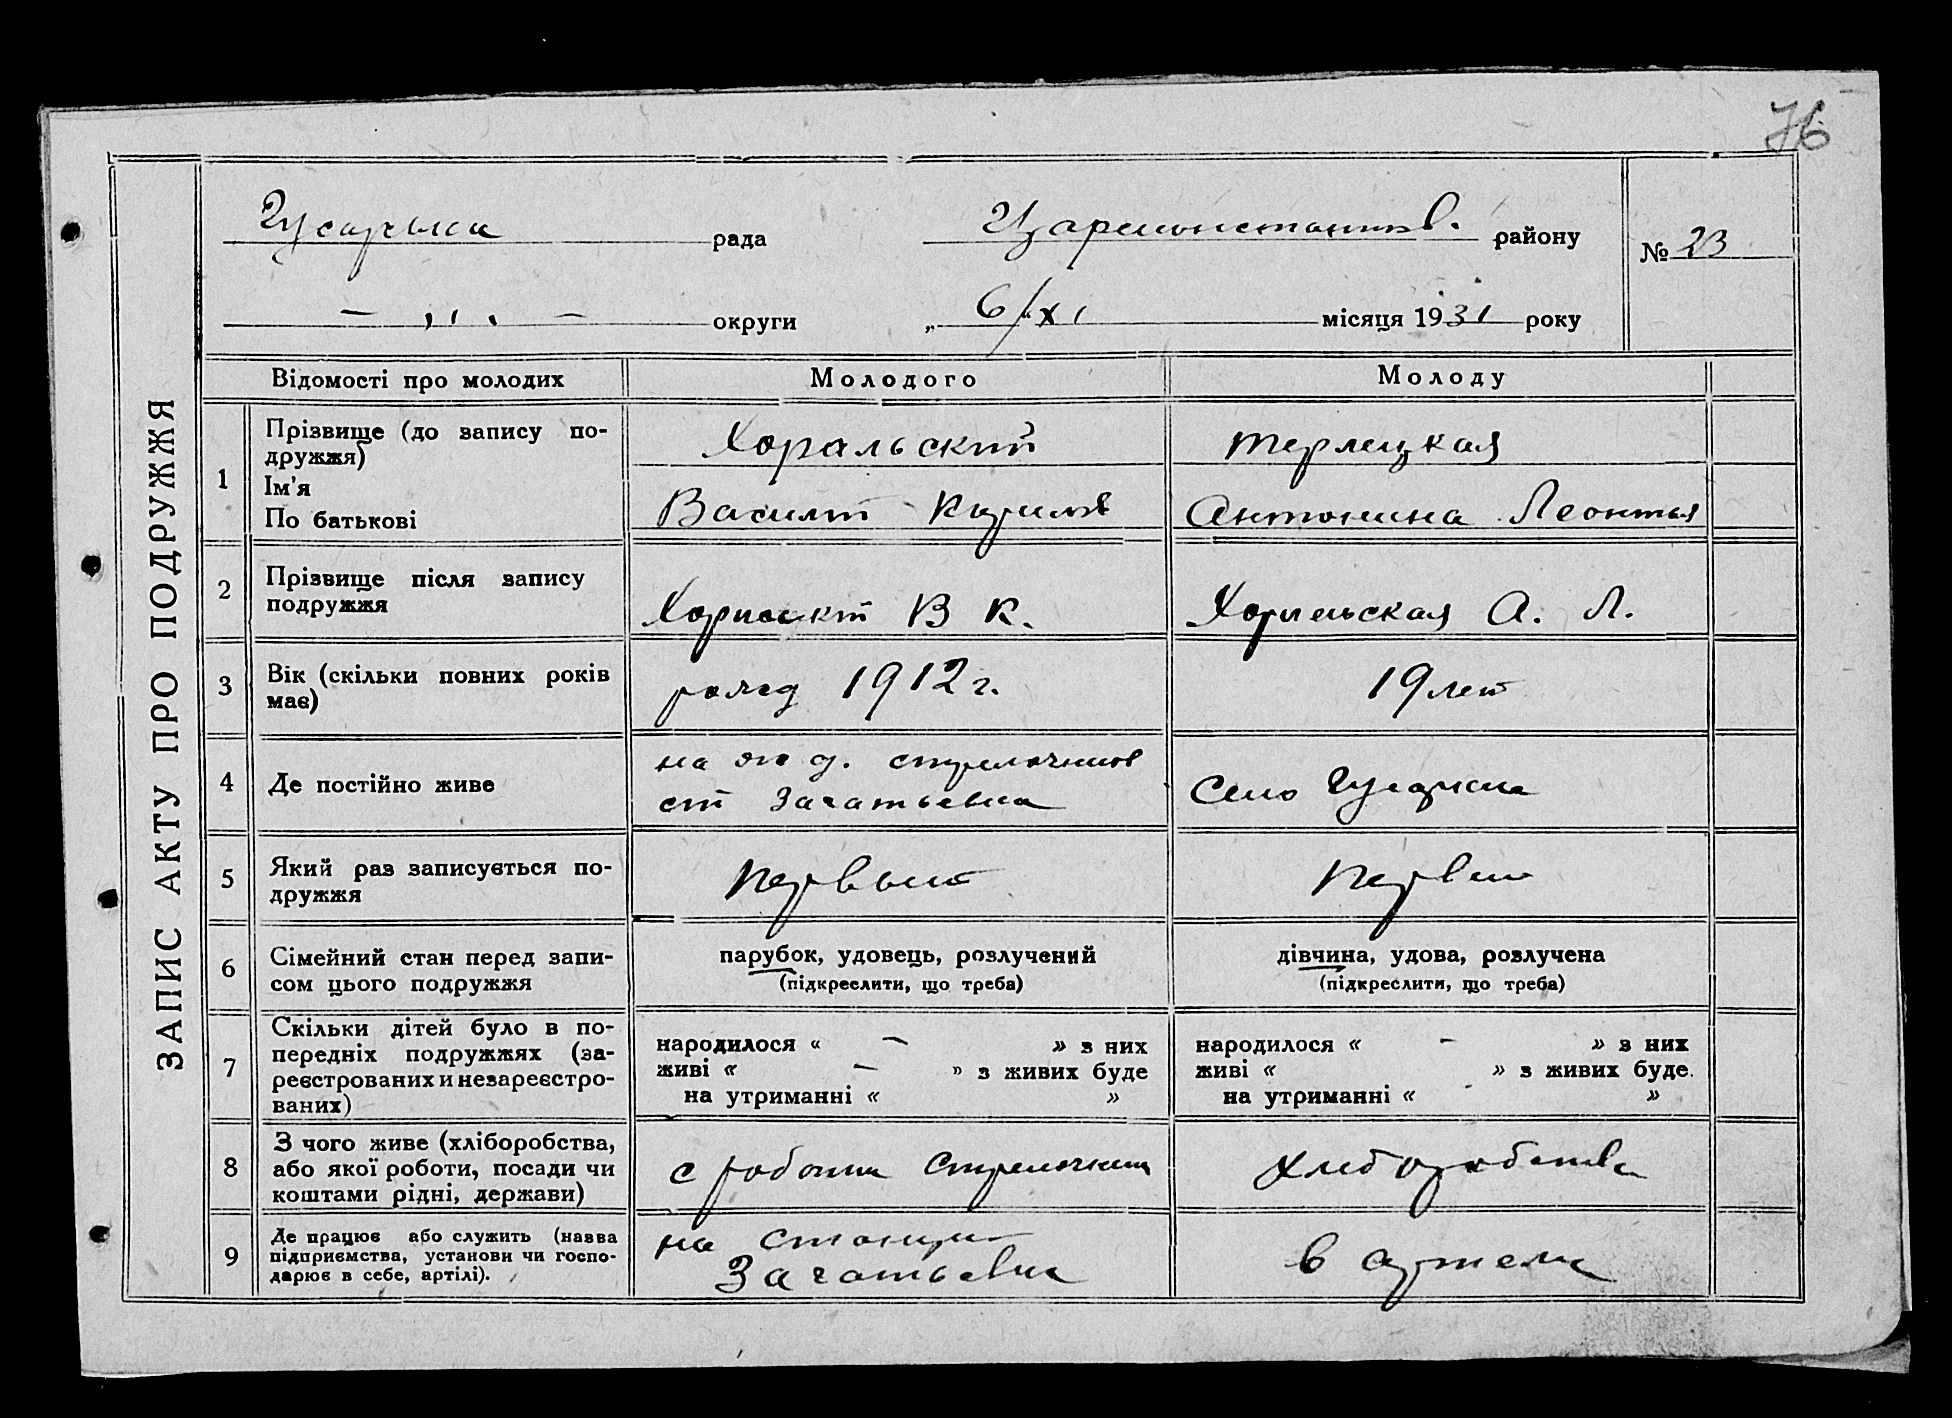 76
Гусарська рада Царьконстантинов. району
№ 23
— „ — округи „ 6/XI місяця 1931 року
ЗАПИС АКТУ ПРО ПОДРУЖЖЯ
Відомості про молодих Молодого Молоду
1 Прізвище (до запису по-
дружжя)
Ім'я
По батькові
Хоральский
Василий Кирилов
Терлецкая
Антонина Леонтья
2 Прізвище після запису
подружжя
В К.
А. Л.
3 Вік (скільки повних років
має)
рожд 1912 г.
19 лет
4 Де постійно живе
на ж д. стрелочников
ст Зачатьевка
Село
5 Який раз записується по-
дружжя
первый
6 Сімейний стан перед запи-
сом цього подружжя
парубок, удовець, розлучений
(підкреслити, що треба)
дівчина, удова, розлучена
(підкреслити, що треба)
7 Скільки дітей було в по-
передніх подружжях (за-
реєстрованих и незареєстро-
ваних)
народилося « — » з них
живі « — » з живих буде
на утриманні « »
народилося « - » з них
живі « » з живих буде.
на утриманні « »
8 З чого живе (хліборобства,
або якої роботи, посади чи
коштами рідні, держави)
с работы стрелочника
хлиборобства
9 Де працює або служить (назва
підприємства, установи чи госпо-
дарює в себе, артілі).
на станции
Зачатьевка
в артели